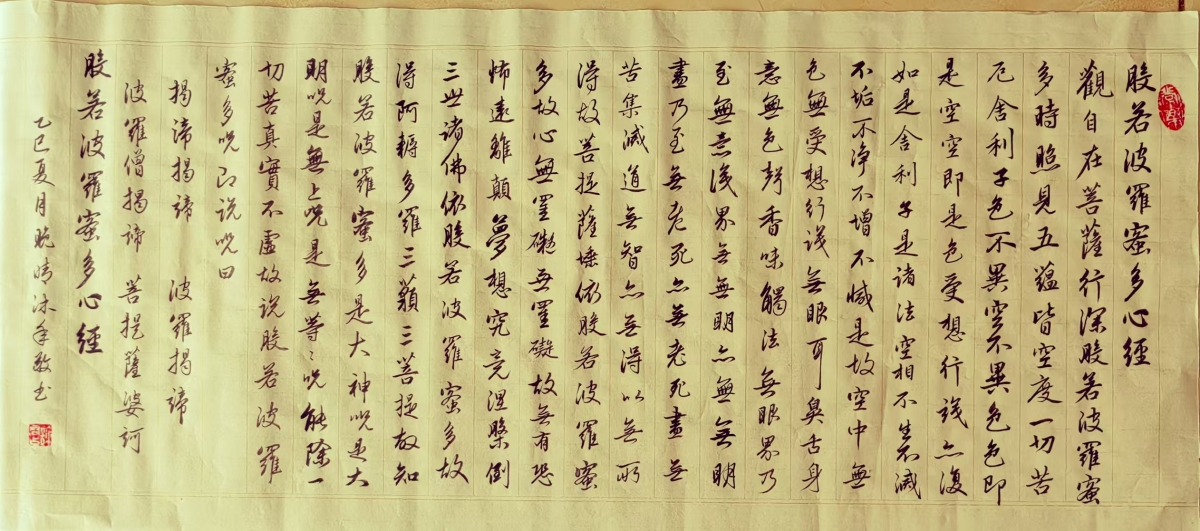 般若波羅蜜多心經
觀自在菩薩行深般若波羅蜜
多時照見五蘊皆空度一切苦
厄舍利子色不異空不異色色即
是空空即是色受想行識亦復
如是舍利子是諸法空相不生不滅
不垢不淨不增不減是故空中無
色無受想行識無眼耳鼻舌身
意無色聲香味觸法無眼界乃
至無意識界無無明亦無無明
盡乃至無老死亦無老死盡無
苦集滅道無智亦無得以無所
得故菩提薩埵依般若波羅蜜
多故心無罣礙無罣礙故無有恐
怖遠離顛夢想究竟涅槃倒
三世諸佛依般若波羅蜜多故
得阿耨多羅三藐三菩提故知
般若波羅蜜多是大神咒是大
明咒是無上咒是無等〻咒能除一
切苦真實不虛故說般若波羅
蜜多咒即說咒曰
揭諦揭諦 波羅揭諦
波羅僧揭諦 菩提薩婆訶
般若波羅蜜多心經
乙巳夏月晚晴沐手敬书